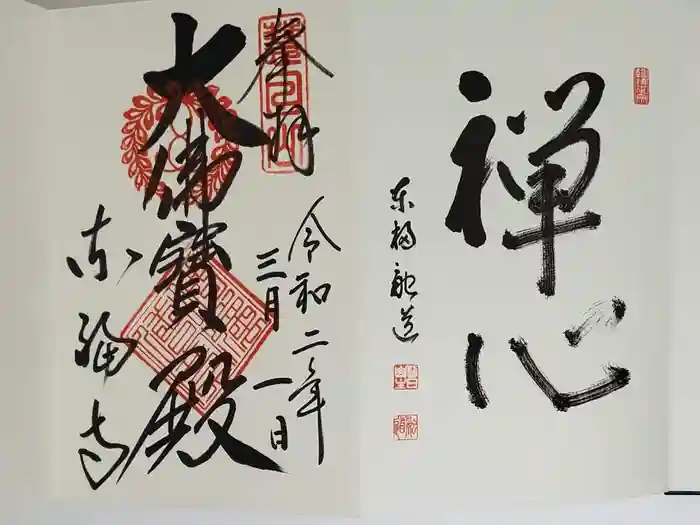 禅心
東福 龍道
奉拝
令和二年
三月一日
大佛寳殿
東福寺